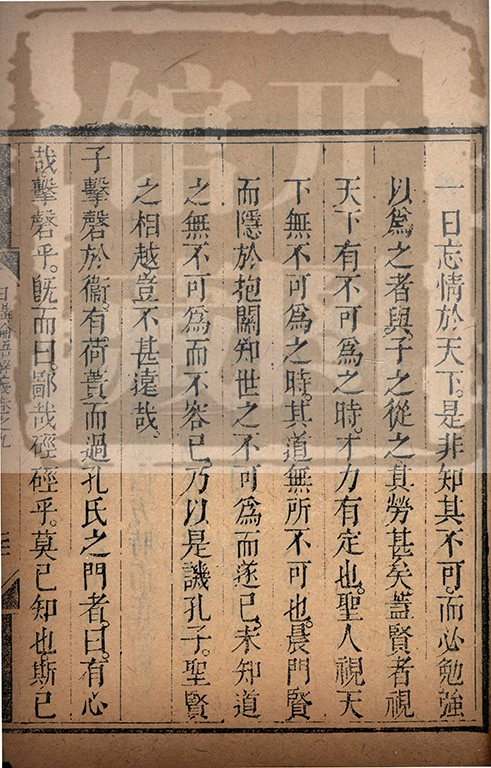 一日忘情於天下。是非知其不可。而必勉強
以爲之者與。子之從之其勞甚矣蓋賢者視
天下有不可爲之時。才力有定也。聖人視天
下無不可爲之時。其道無所不可也。晨門賢
而隱於抱關知世之不可爲而遂已。未知道
之無不可爲而不容已。乃以是譏孔子。聖賢
之相越豈不甚遠哉。
子擊磬於衞。有荷蕢而過孔氏之門者。曰。有心
哉擊磬乎。旣而曰。鄙哉硜硜乎。莫已知也斯已
日講論語解義卷之九